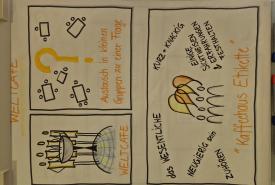 WELTCAFÉ
?
Austausch in kleinen
Gruppen zu einer Frage
WELTCAFE
KURZ + KNACKIG
EINE
ERFAHRUNGEN
& FESTHALTEN
"Kaffeehaus Etikette"
DAS WESENTLICHE
NEUGIERIG SEIN
ZUHÖREN